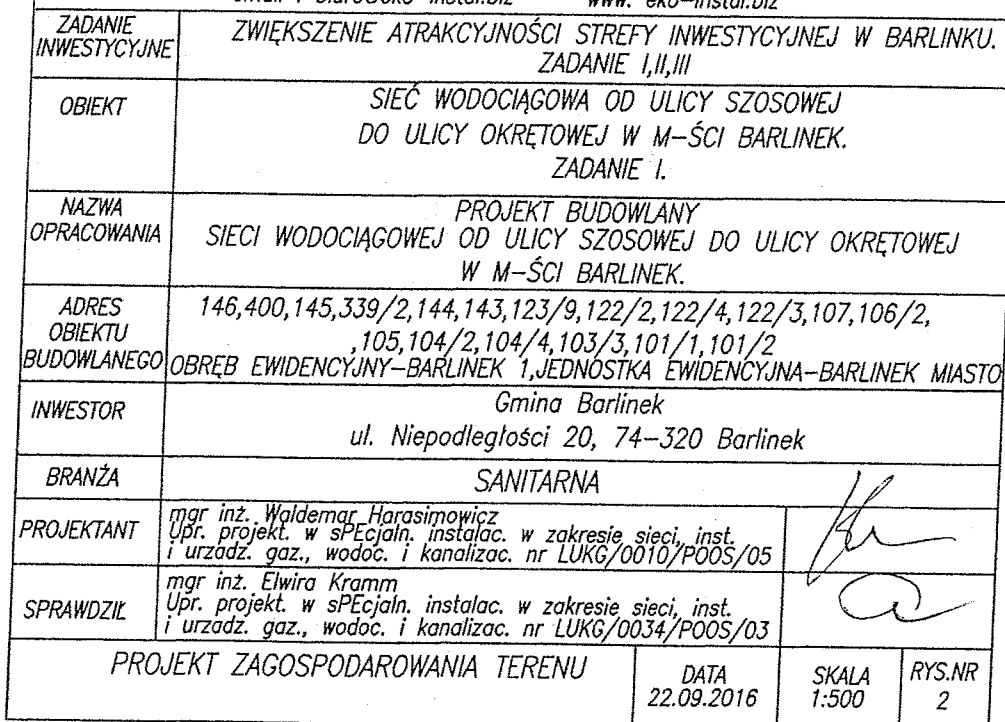 ZADANIE INWESTYCYJNE
ZWIĘKSZENIE ATRAKCYJNOŚCI STREFY INWESTYCYJNEJ W BARLINKU.
ZADANIE I,II,III
OBIEKT
SIEĆ WODOCIĄGOWA OD ULICY SZOSOWEJ
DO ULICY OKRĘTOWEJ W M-ŚCI BARLINEK.
ZADANIE I.
NAZWA
OPRACOWANIA
PROJEKT BUDOWLANY
SIECI WODOCIĄGOWEJ OD ULICY SZOSOWEJ DO ULICY OKRĘTOWEJ
W M-ŚCI BARLINEK.
ADRES
OBIEKTU
BUDOWLANEGO
146,400,145,339/2,144,143,123/9,122/2,122/4,122/3,107,106/2,
,105,104/2,104/4,103/3,101/1,101/2
OBRĘB EWIDENCYJNY-BARLINEK 1,JEDNOSTKA EWIDENCYJNA-BARLINEK MIASTO
INWESTOR
Gmina Barlinek
ul. Niepodległości 20, 74-320 Barlinek
BRANŻA
SANITARNA
PROJEKTANT
mgr inż. Waldemar Harasimowicz
Upr. projekt. w sPEcjaln. instalac. w zakresie sieci, inst.
i urządz. gaz., wodoc. i kanalizac. nr LUKG/0010/POOS/05
SPRAWDZIŁ
mgr inż. Elwira Kramm
Upr. projekt. w sPEcjaln. instalac. w zakresie sieci, inst.
i urządz. gaz., wodoc. i kanalizac. nr LUKG/0034/POOS/03
PROJEKT ZAGOSPODAROWANIA TERENU
DATA
22.09.2016
SKALA
1:500
RYS.NR
2